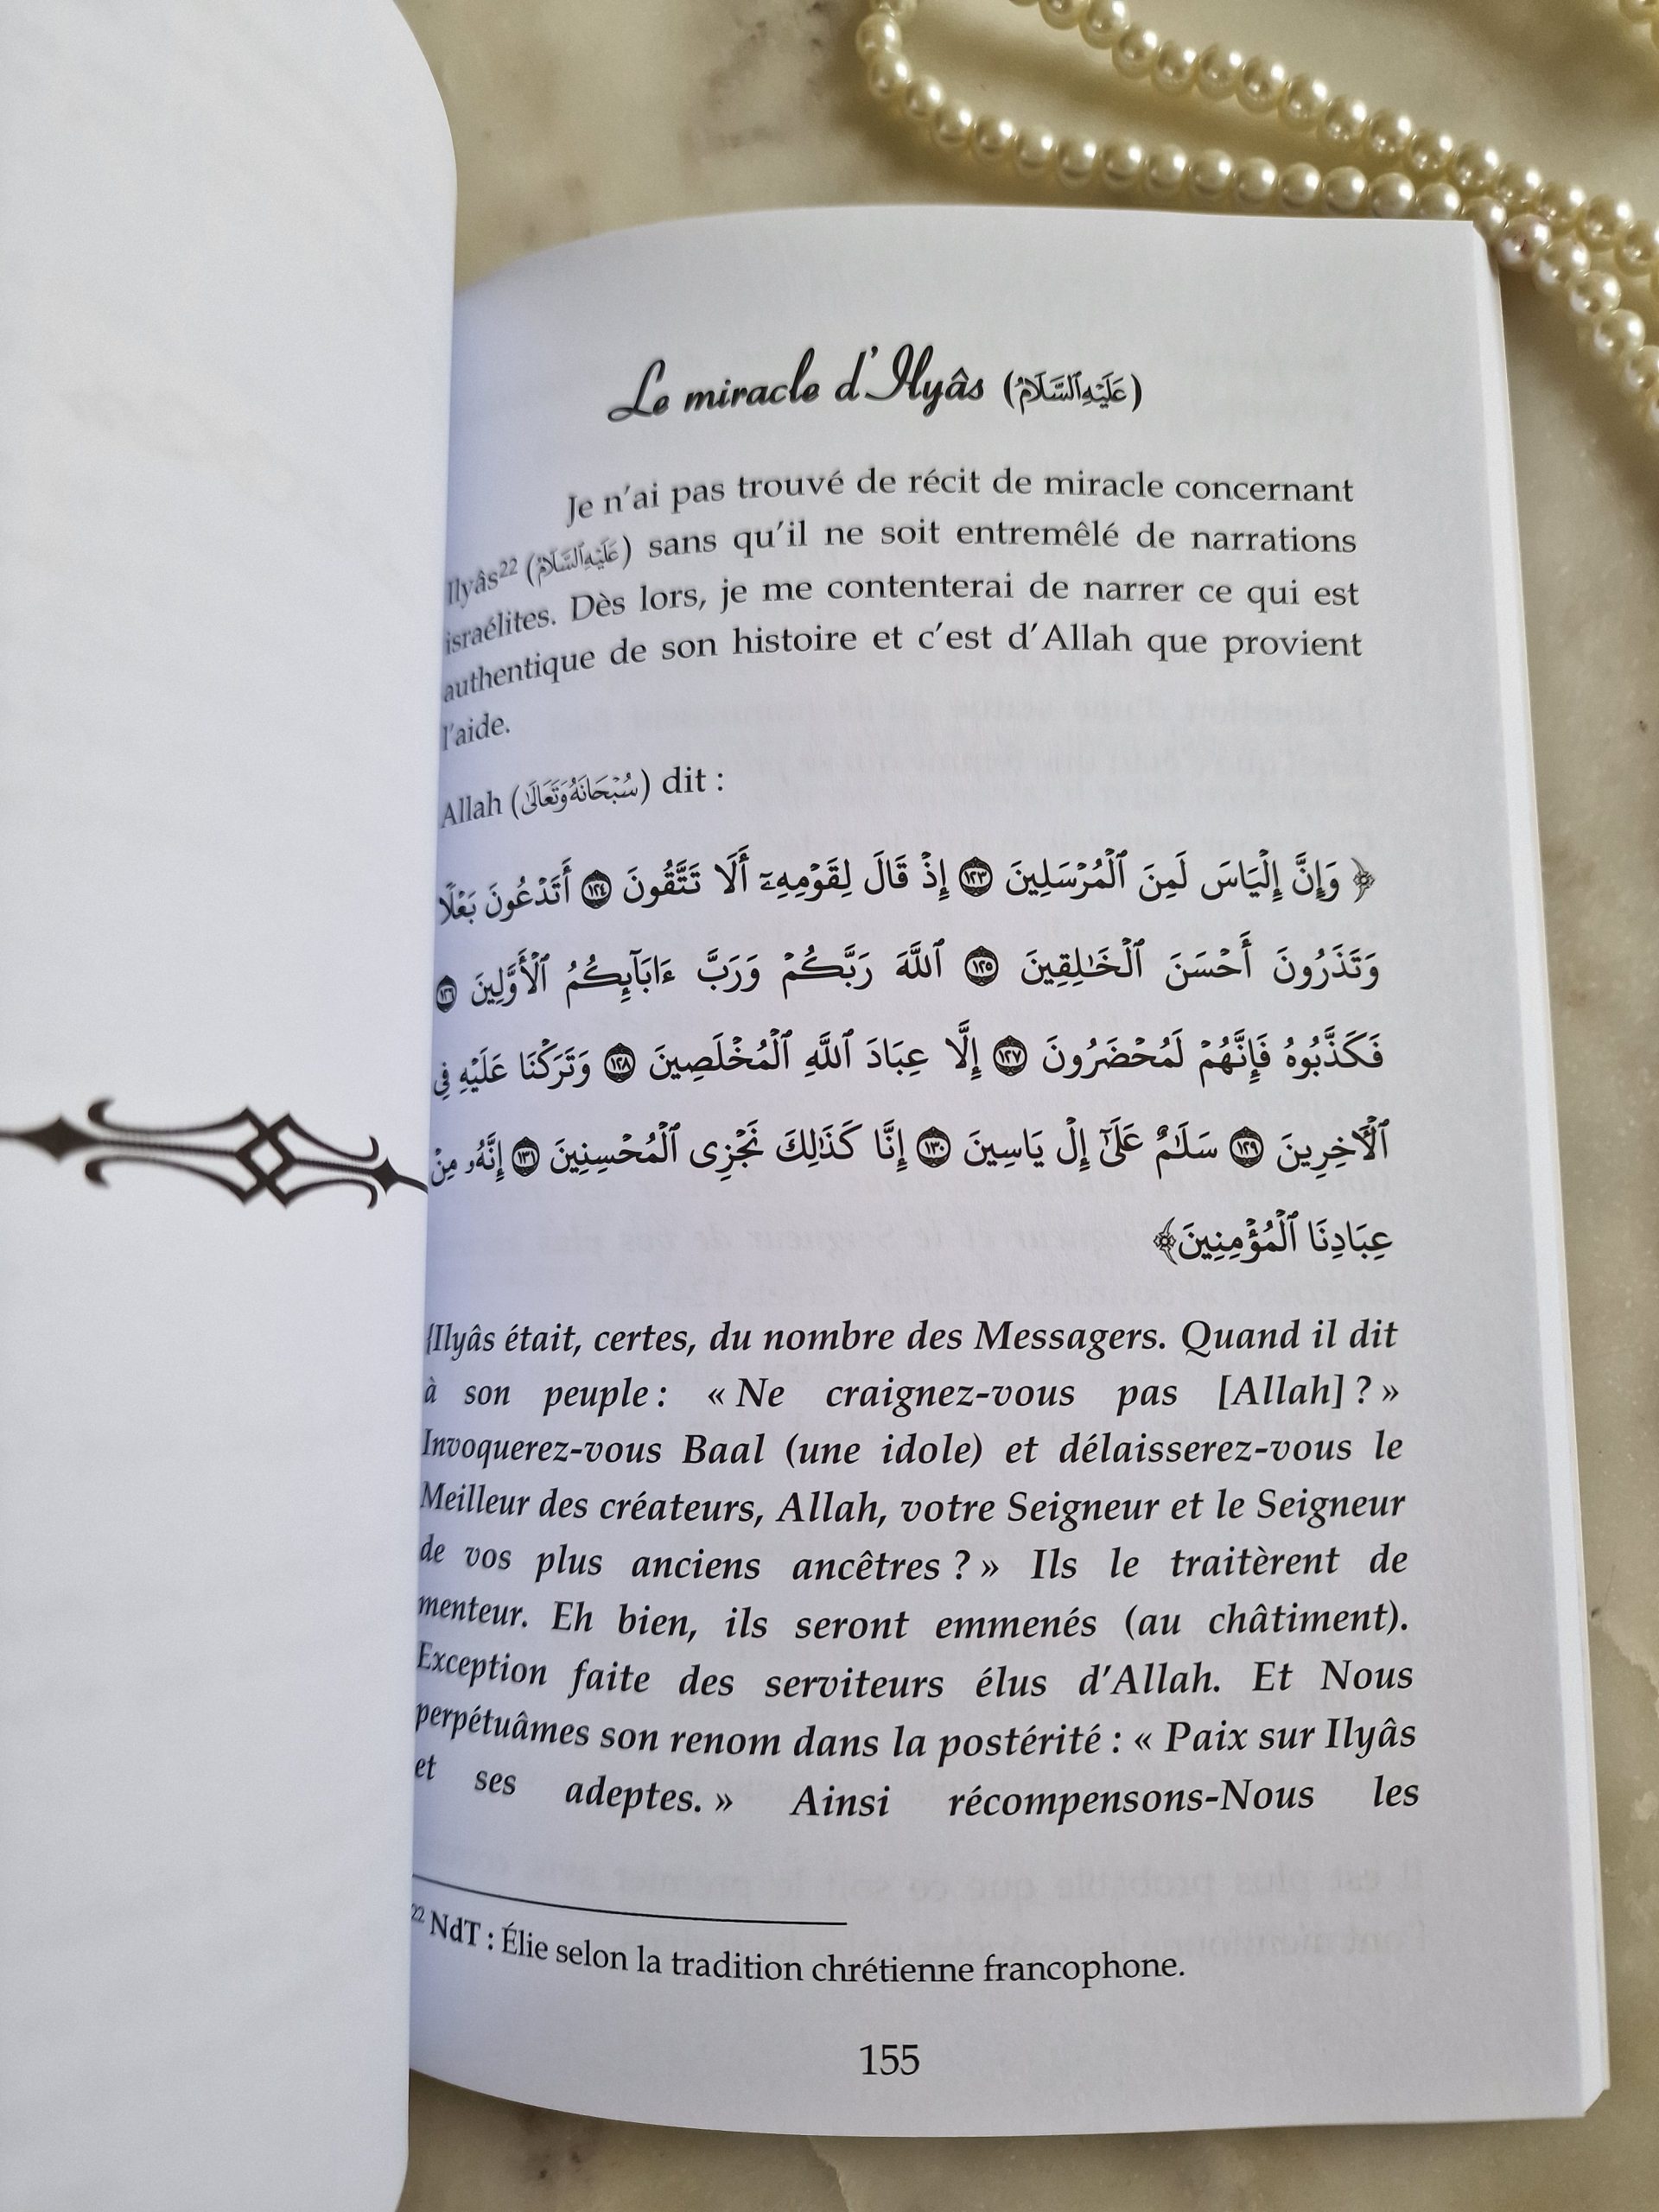 Le miracle d'Ilyâs (عَلَيْهِ ٱلسَّلَامُ)
Je n'ai pas trouvé de récit de miracle concernant
Ilyâs²² (عَلَيْهِ ٱلسَّلَامُ) sans qu'il ne soit entremêlé de narrations
israélites. Dès lors, je me contenterai de narrer ce qui est
authentique de son histoire et c'est d'Allah que provient
l'aide.
Allah (سُبْحَانَهُ وَتَعَالَىٰ) dit :
﴿ وَإِنَّ إِلْيَاسَ لَمِنَ ٱلْمُرْسَلِينَ ١٢٣ إِذْ قَالَ لِقَوْمِهِۦٓ أَلَا تَتَّقُونَ ١٢٤ أَتَدْعُونَ بَعْلًا
وَتَذَرُونَ أَحْسَنَ ٱلْخَـٰلِقِينَ ١٢٥ ٱللَّهَ رَبَّكُمْ وَرَبَّ ءَابَآئِكُمُ ٱلْأَوَّلِينَ ١٢٦
فَكَذَّبُوهُ فَإِنَّهُمْ لَمُحْضَرُونَ ١٢٧ إِلَّا عِبَادَ ٱللَّهِ ٱلْمُخْلَصِينَ ١٢٨ وَتَرَكْنَا عَلَيْهِ فِى
ٱلْـَٔاخِرِينَ ١٢٩ سَلَـٰمٌ عَلَىٰٓ إِلْ يَاسِينَ ١٣٠ إِنَّا كَذَٰلِكَ نَجْزِى ٱلْمُحْسِنِينَ ١٣١ إِنَّهُۥ مِنْ
عِبَادِنَا ٱلْمُؤْمِنِينَ﴾
{Ilyâs était, certes, du nombre des Messagers. Quand il dit
à son peuple : « Ne craignez-vous pas [Allah] ? »
Invoquerez-vous Baal (une idole) et délaisserez-vous le
Meilleur des créateurs, Allah, votre Seigneur et le Seigneur
de vos plus anciens ancêtres ? » Ils le traitèrent de
menteur. Eh bien, ils seront emmenés (au châtiment).
Exception faite des serviteurs élus d'Allah. Et Nous
perpétuâmes son renom dans la postérité : « Paix sur Ilyâs
et ses adeptes. » Ainsi récompensons-Nous les
²² NdT : Élie selon la tradition chrétienne francophone.
155